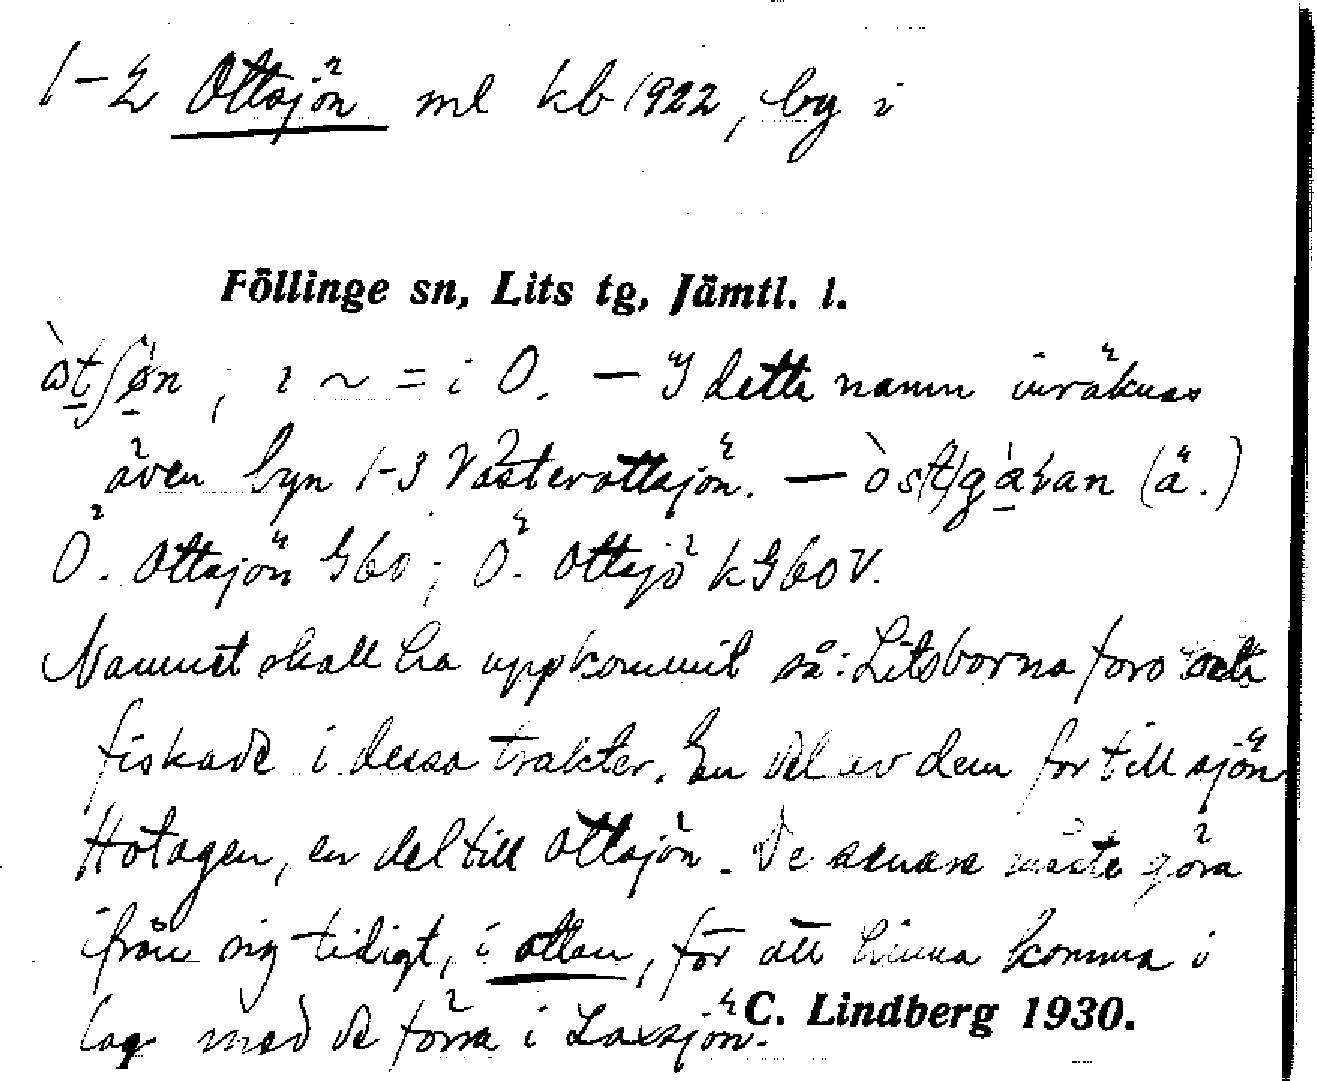 1-2 Ottsjön ml kb 1922, by i
Föllinge sn, Lits tg, Jämtl. l.
; ı ~ = i O. — I detta namn inräknas
även byn 1-3 Västerottsjön. — (ä.)
Ö. Ottsjön G60; Ö. Ottsjö kG60V.
Namnet skall ha uppkommit så: Litsborna foro och
fiskade i dessa trakter. En del av dem for till sjön
Hotagen, en del till Ottsjön. De senare måste göra
ifrån sig tidigt, i ottan, för att hinna komma i
lag med de förra i Laxsjön.
C. Lindberg 1930.